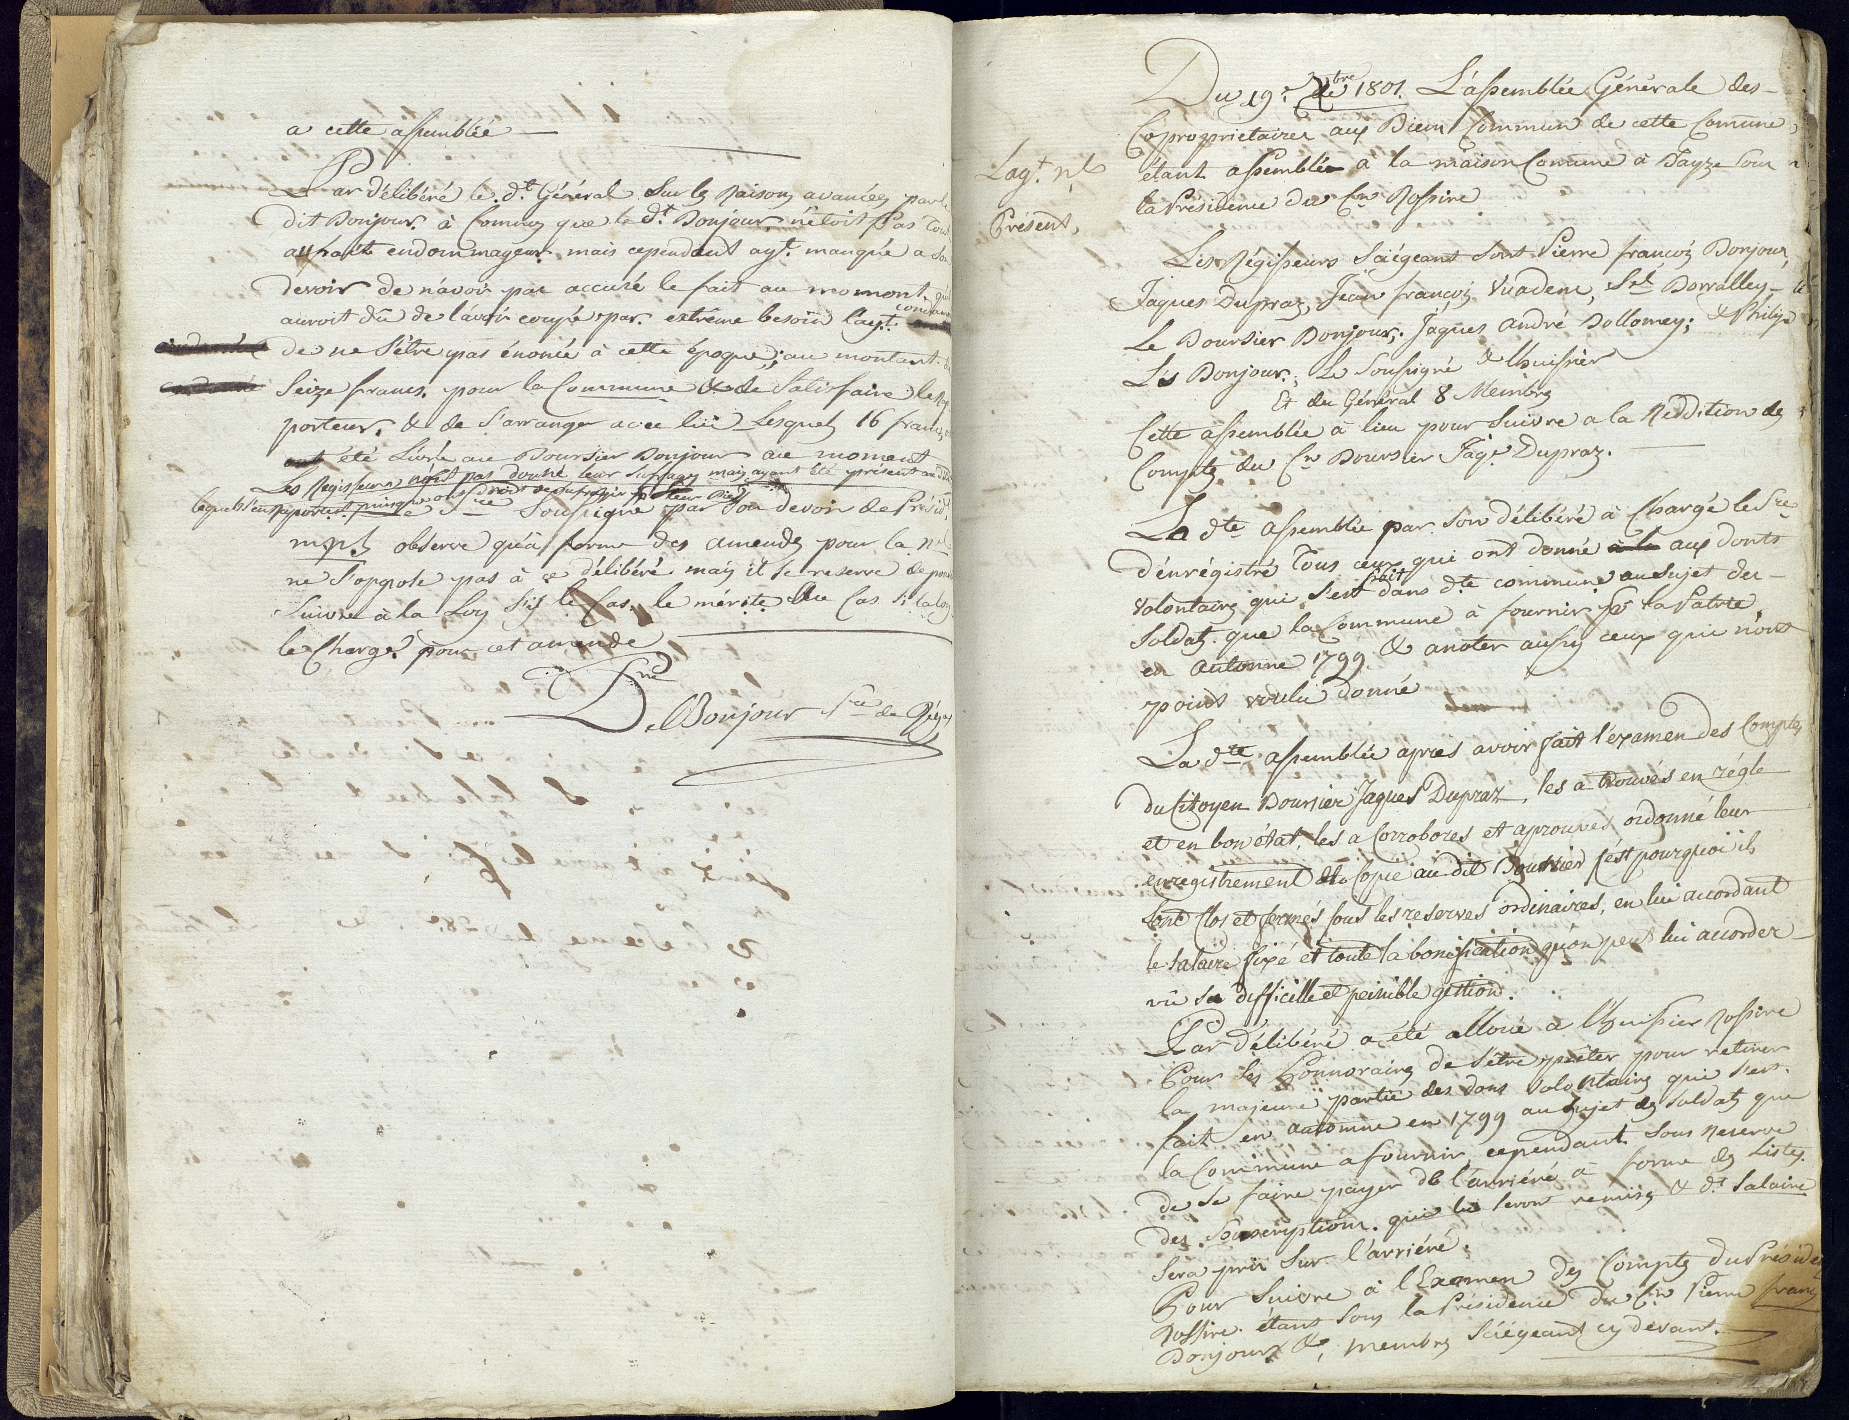 a cette assemblée
Par délibéré le d.t Général sur les raisons avancées par le
dit Bonjour. à Connus que le d.t Bonjour n'etoit pas tout
affait endommageur. mais cependant ayt. manqué a son
devoir de n'avoir pas accusé le fait au moment, qu'il
auroit dû de l'avoir coupé par extrême besoin l'ayt. condam
de ne s'être pas énoncé à cette époque; au montant de
Seize francs. pour la Commune & de satisfaire le rap
porteur, & de s'arranger avec lui Lesquels 16 francs
ont été Livré au Boursier Bonjour au moment
Les Régisseurs n'ont pas donné leur suffrages mais ayant été présent
lequels s'en raportent puisque
Le S.re Soussigné par Son devoir de
observe qu'à forme des amendes pour la
ne s'oppose pas à ce délibéré mais il se reserve de pour
suivre à la Loy s'is le Cas le mérite Au Cas si la loy
le Charge pour cet amende
D. Bonjour S.re de Régie
Du 19.e Xbre 1801. L'assemblée Générale des
Coproprietaires aux Biens Commun de cette Comune
Lagt. n.l
Présent,
étant assemblée à la maison Comune à
la Présidence du C.n Rossire
Les Régisseurs Sciégeant sont Pierre françois Bonjour,
Jaques Dupraz, Jean françois Vuadens, S.l Dorralley
Le Boursier Bonjour; Jaques André Dollomey; & Philipe
L.s Bonjour; Le Soussigné & l'huissier
Et du Général 8 Membres
Cette assemblée à lieu pour suivre a la Reddition des
Compte du C.n Boursier Jaq.s Dupraz.
La d.te assemblée par son délibéré à Chargé le S.re
d'énrégistré Tous ceux qui ont donné aux donts
volontaires qui s'est fait dans d.te commune au Sujet des
Soldats que la Commune à fournir p.r la Patrie,
en automne 1799 & anoter aussy ceux qui n'ont
point voulu donné
La d.te assemblée apres avoir fait l'éxamen des Comptes
du Citoyen Boursier Jaques Dupraz, les a trouvés en régle
et en bon état, les a Corrobores et aprouvés, ordonné leur
enregistrement et Copie au dit Boursier c'est pourquoi ils
sont Clos et fermés sous les reserves ordinaires, en lui accordant
le salaire fixé et toute la bonification qu'on peut lui accorder
vû sa difficille et peinible gestion.
Par délibéré a été alloué a l'huissier Rossire
Pour ses honnoraires de s'être prêter pour retirer
la majeure partie des dons volontaires qui s'est
fait en automne en 1799 au Sujet des soldats que
la Commune a fournir cependant sous reserve
de se faire payer de l'arriéré à forme des Listes
des Souscriptions. qui lui seront remises & d.t salaire
sera pris sur l'arriéré.
Pour suivre à l'Examen des Compte du Présiden
Rossire. étant sous la Présidence du C.n Pierre franç
Bonjour & membres sciégeant cy devant.